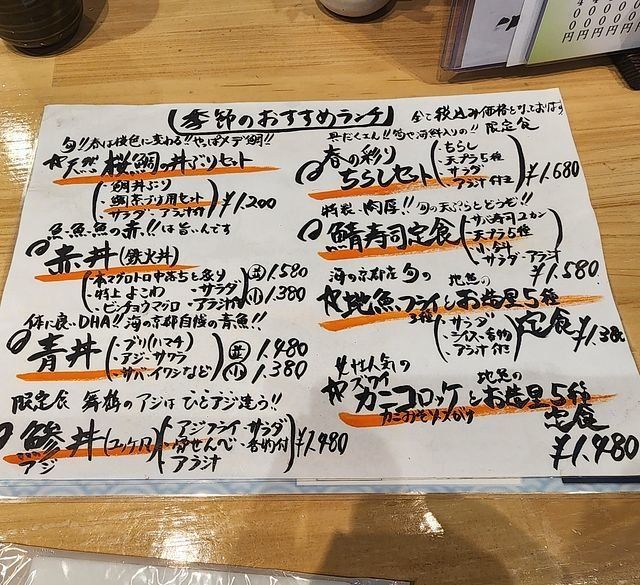 季節のおすすめランチ
全て税込み価格となっております
旬!!春は桜色に変わる!!やっぱ〆デ鯛!!
天然 桜鯛の丼ぶりセット
・鯛丼ぶり
・鯛茶づけ用セット
・サラダ・アラ汁付
¥1,200
魚.魚.魚の赤.!!は旨いんです
赤丼(鉄火丼)
・本マグロトロ中落ちと炙り
・特上よこわ ・サラダ
・ビンチョウマグロ ・アラ汁付
並 1.580
小 1.380
体に良いDHA!!海の京都自慢の青魚!!
青丼
・ブリ(ハマチ)
・アジ・サワラ
・サバ・イワシなど
並 1.480
小 1.380
限定食 舞鶴のアジはひとアジ違う!!
鯵丼(ユッケ風)
アジ
・アジフライ・サラダ
・骨せんべ・香物付
・アラ汁
¥1,480
具だくさん!!旬や海鮮入りの!! 限定食
春の彩り
ちらしセット
・ちらし
・天プラ5種
・サラダ
・アラ汁付
¥1,680
特製.肉厚!!旬の天ぷらとどうぞ!!
鯖寿司定食
・サバ寿司2カン
・天プラ5種
・小鉢
・サラダ・アラ汁
¥1,580
海の京都店
地魚フライとお造里5種
地魚の
3種
定食
・サラダ
・ライス・香物
・アラ汁付
¥1,380
女性人気の
ズワイ
カニコロッケとお造里5種
地魚の
カニみそソースがけ
定食
¥1,480
円
円
円
円
円